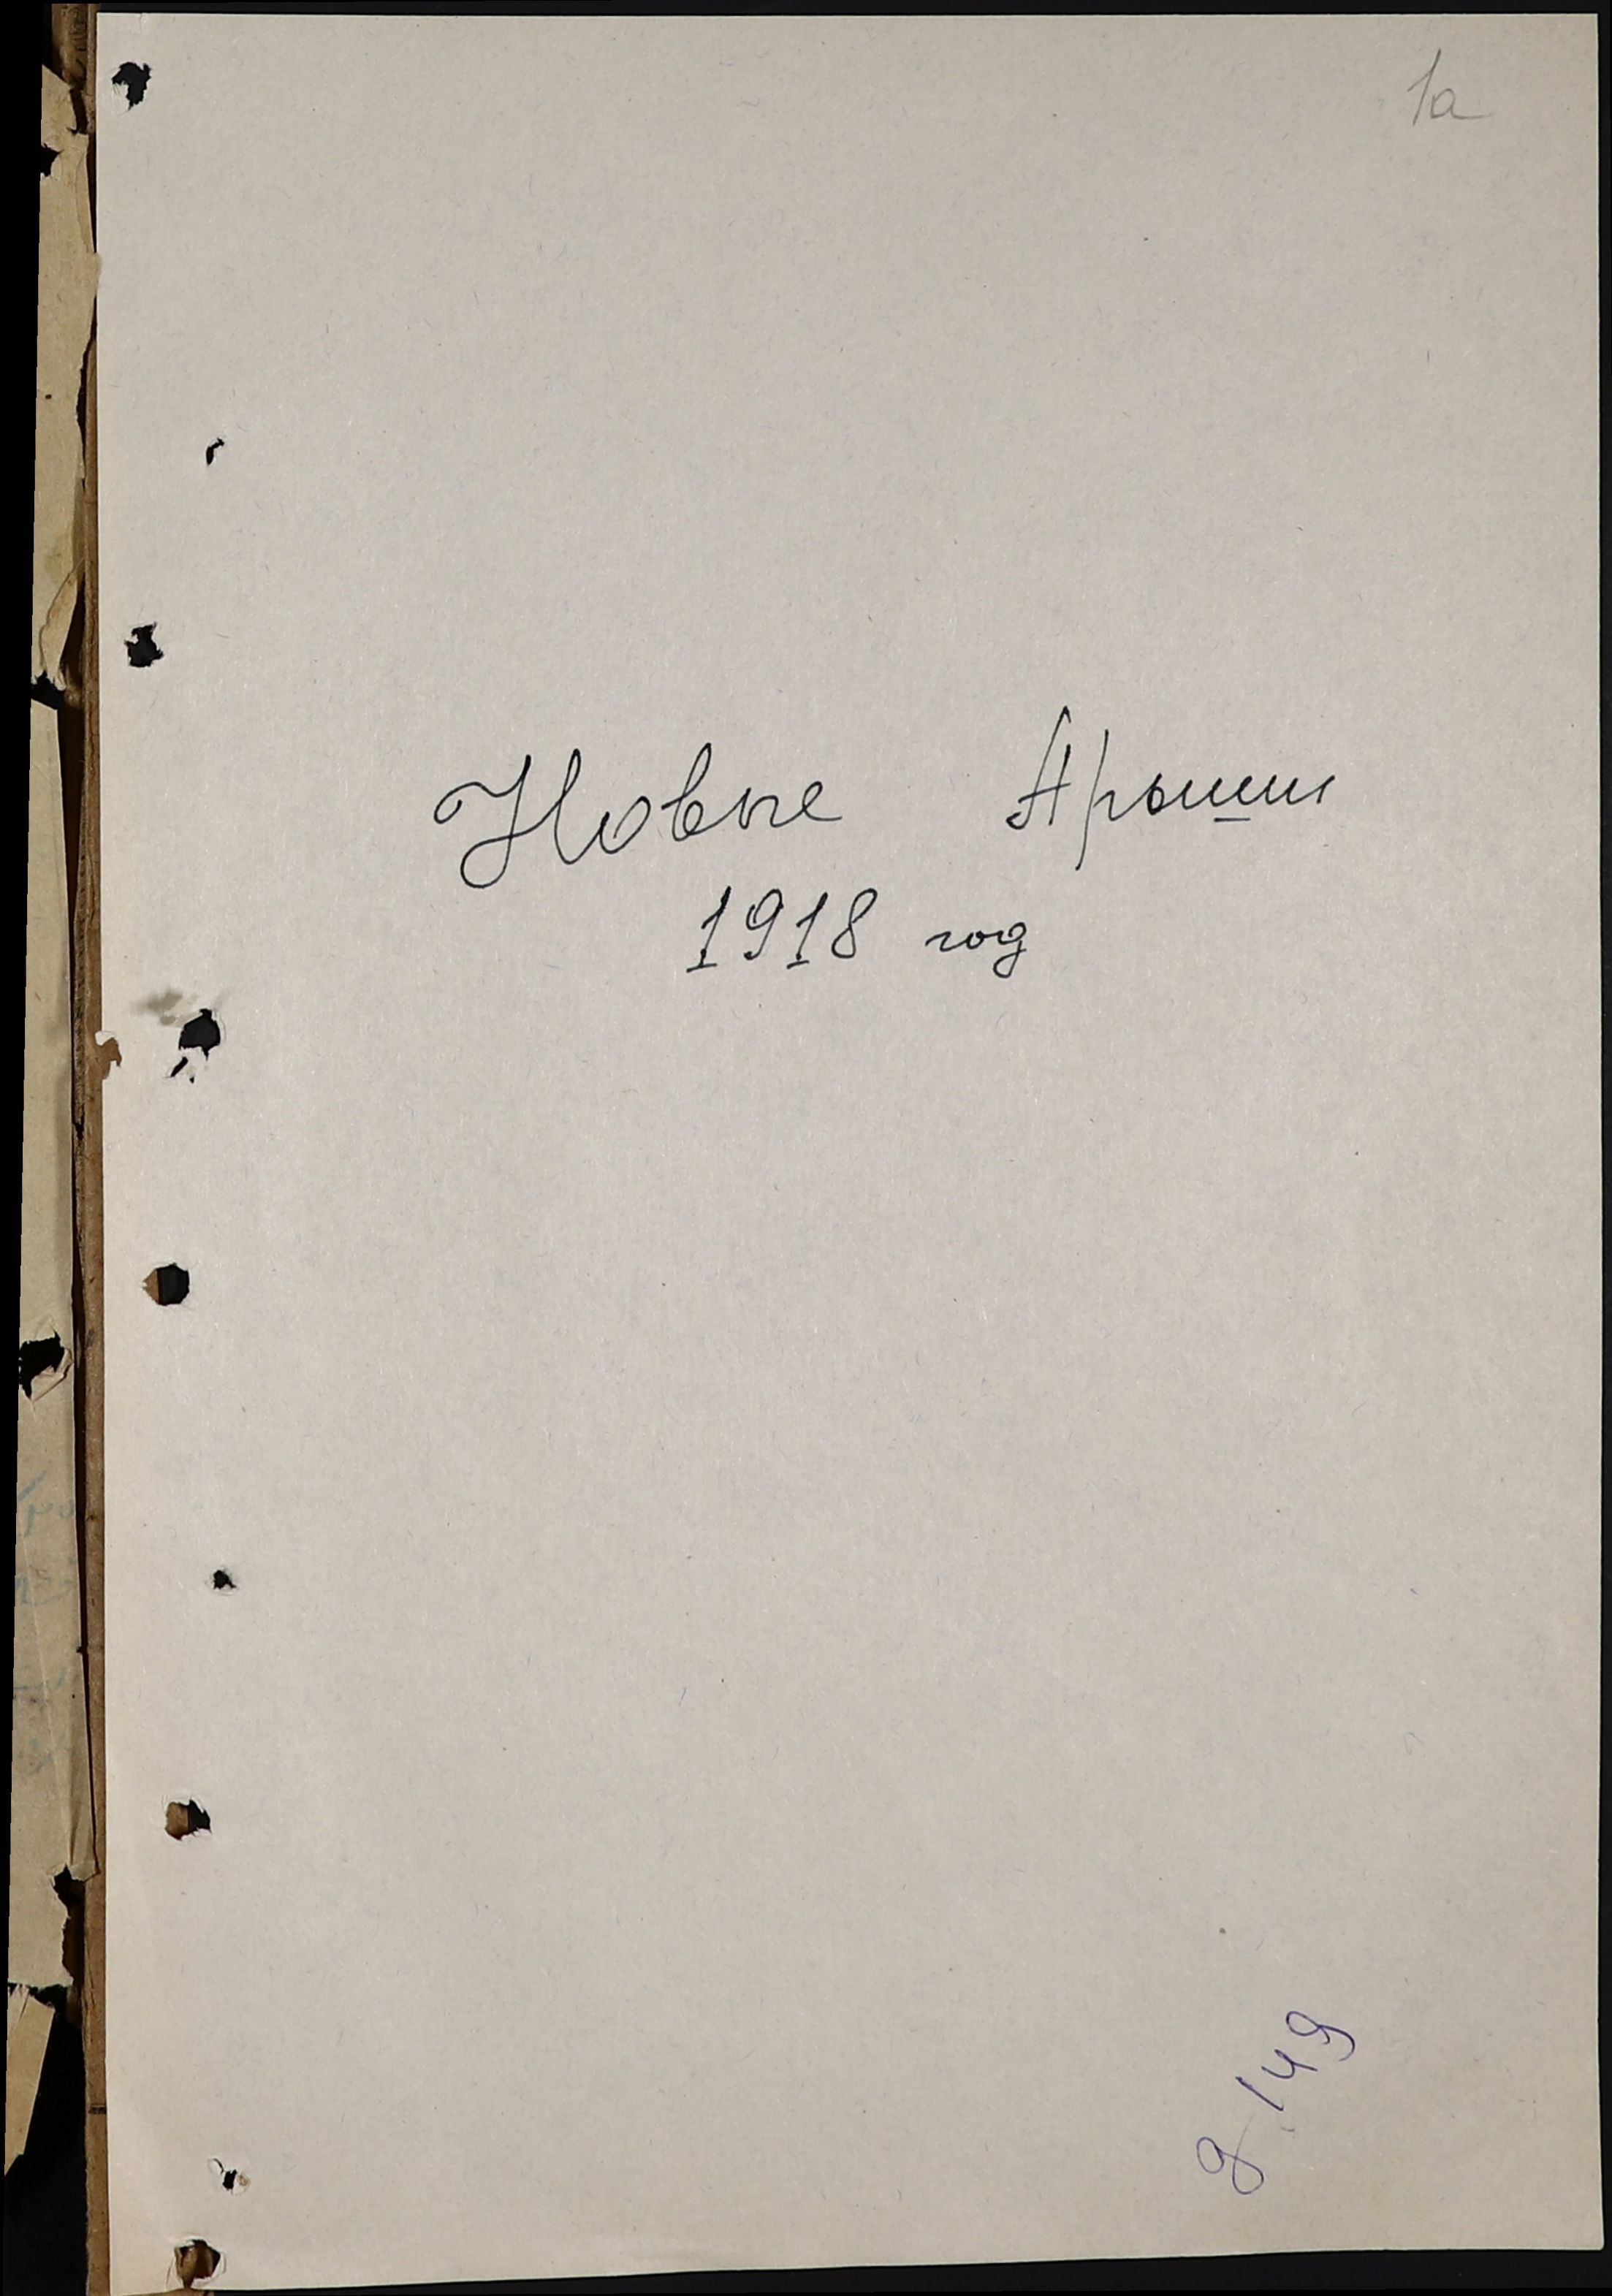 1а
Новые Арыши
1918 год
д. 149